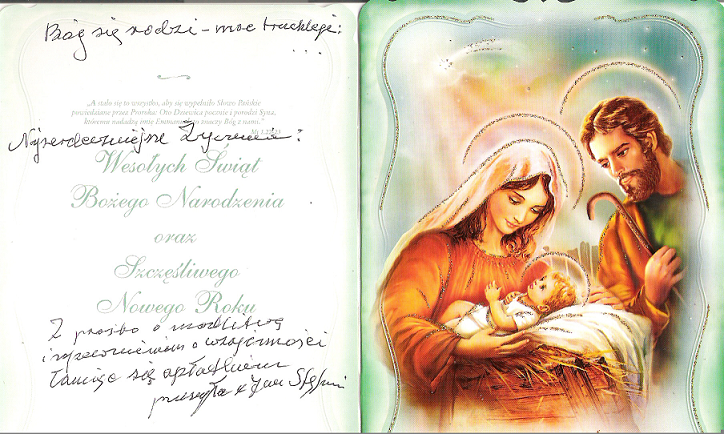 Bóg się rodzi - moc truchleje:
...
„A stało się to wszystko, aby się wypełniło Słowo Pańskie
powiedziane przez Proroka: Oto Dziewica pocznie i porodzi Syna,
któremu nadadzą imię Emmanuel, to znaczy Bóg z nami."
Mt 1,22-23
Najserdeczniejsze Życzenia:
Wesołych Świąt
Bożego Narodzenia
oraz
Szczęśliwego
Nowego Roku
Z prośbą o modlitwę
i zapewnieniem o wzajemności
łamiąc się opłatkiem
przesyła x Jan